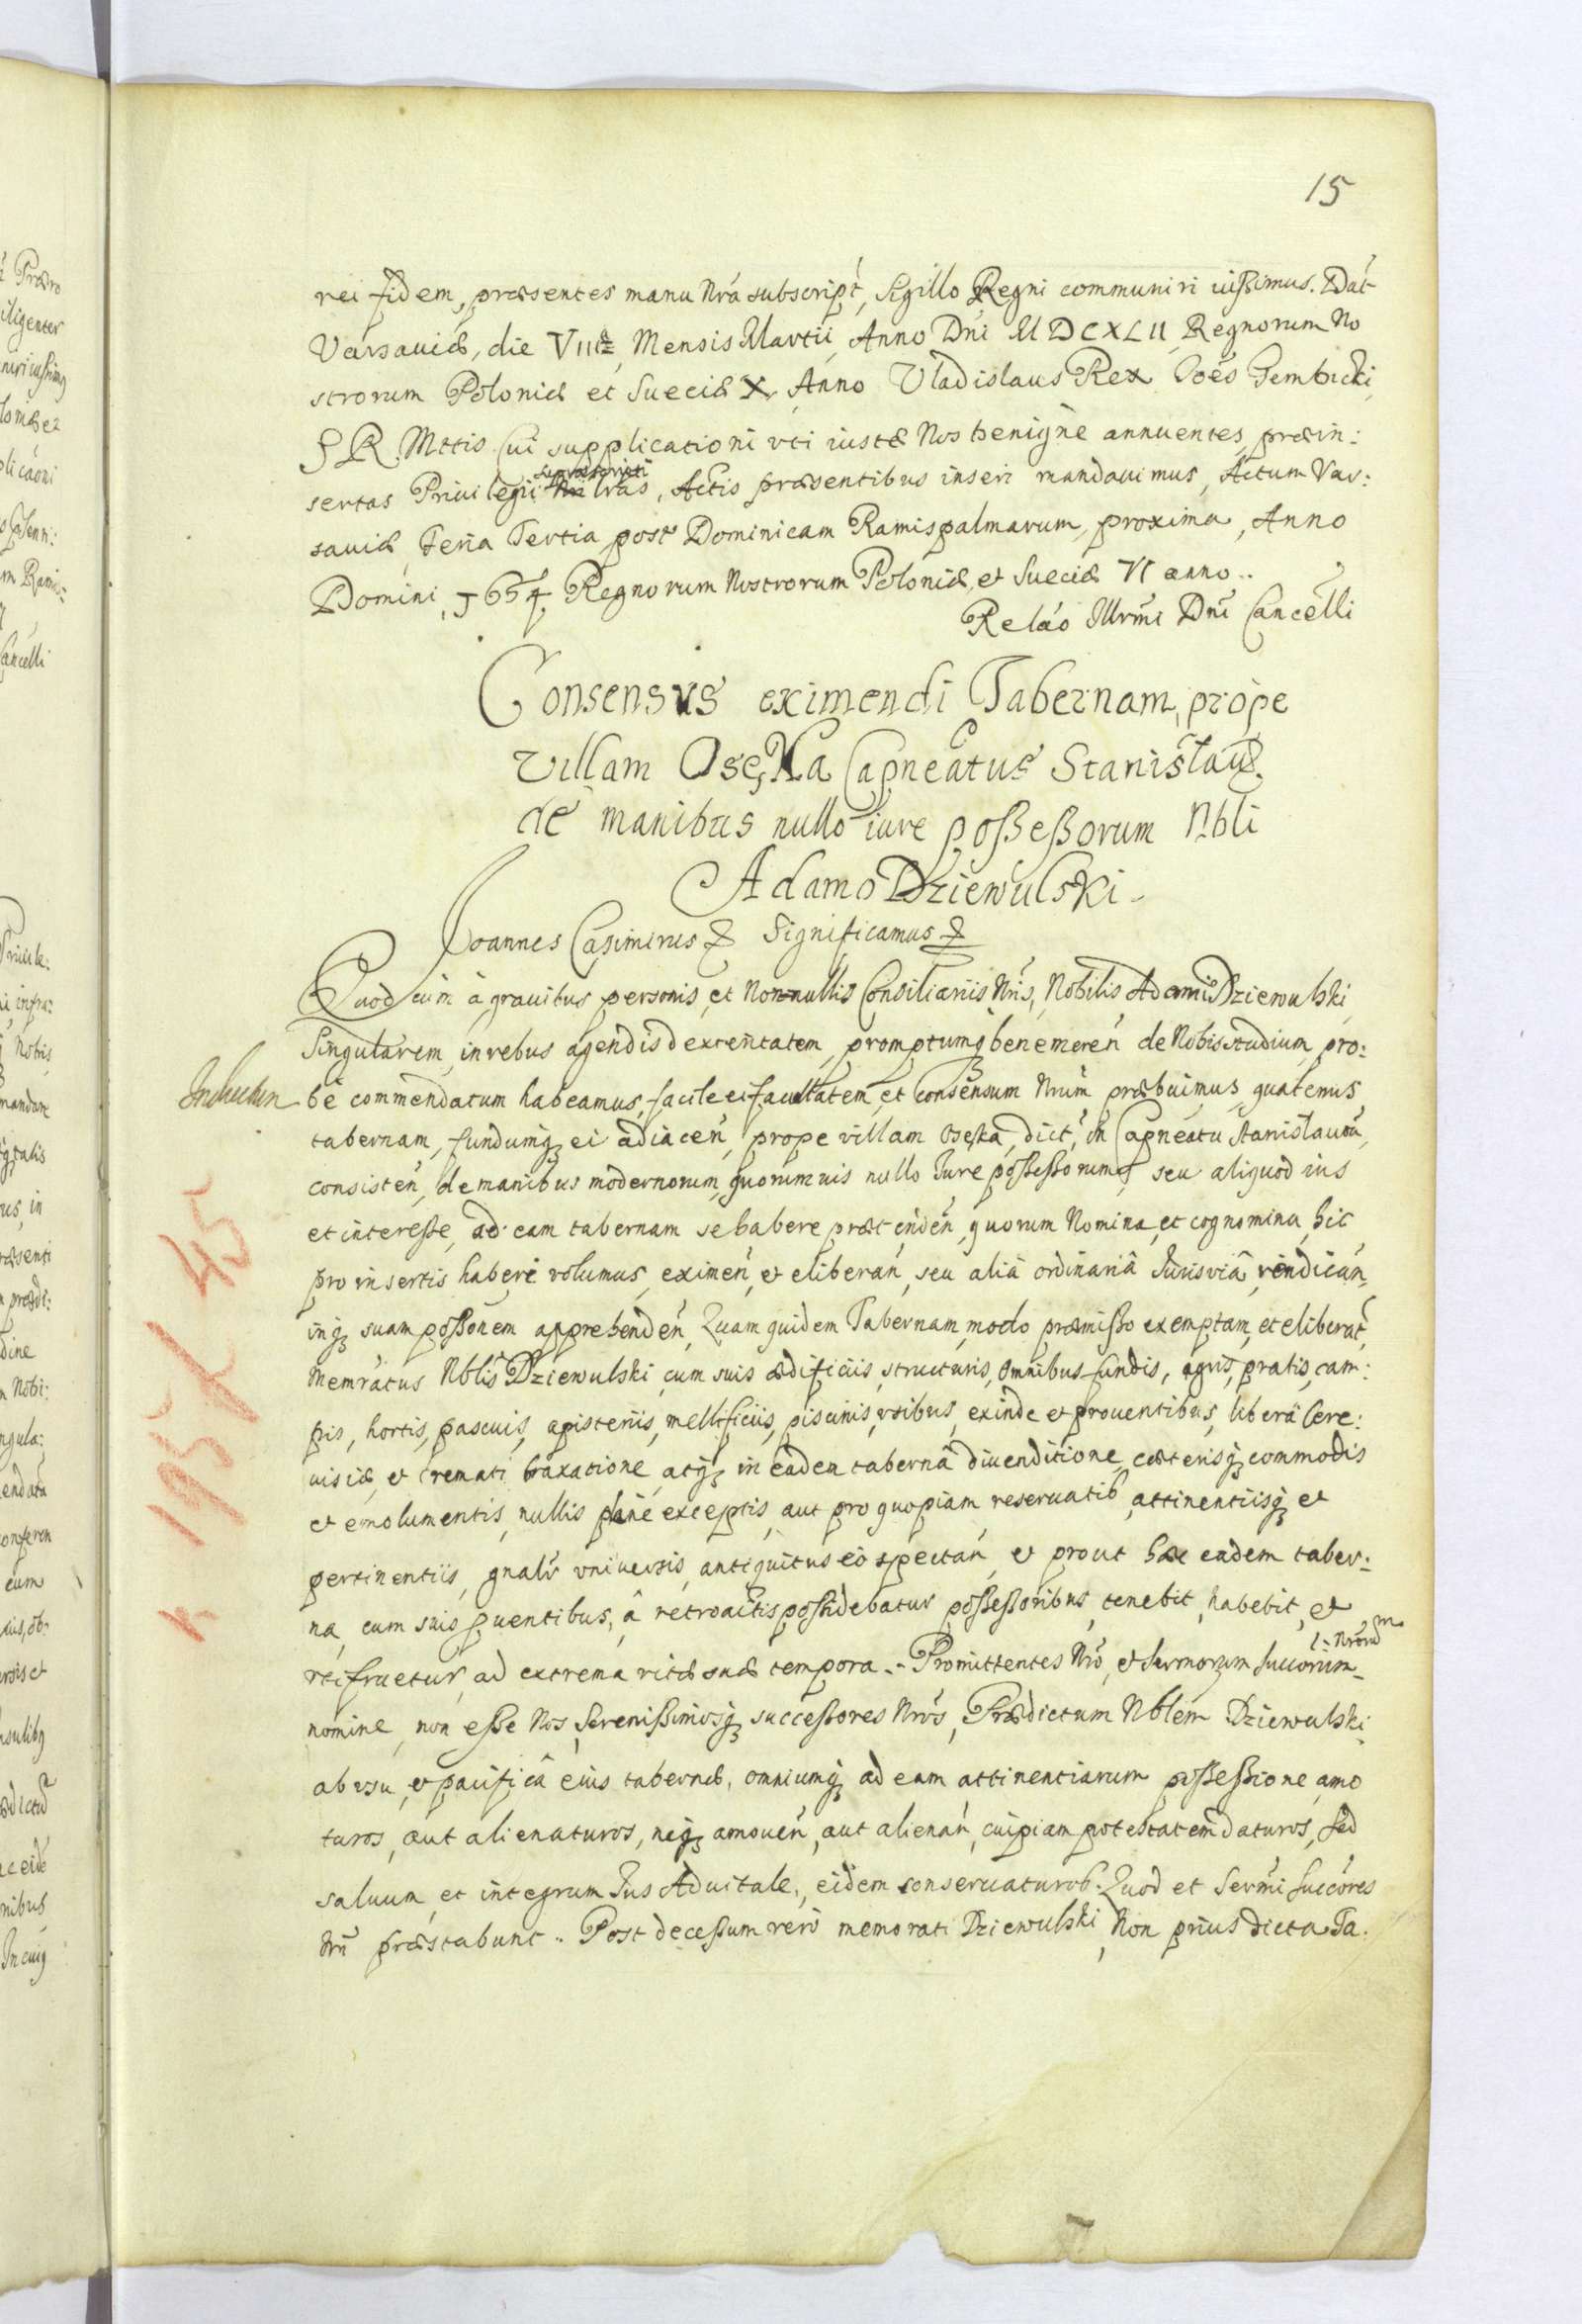 15
rei fidem, præsentes manu Nrá subscript, Sigillo Regni communiri iußimus. Dat
Varsauiæ, die VIII Mensis Martii, Anno Dni MDCXLII, Regnorum No
strorum Poloniæ et Sueciæ X Anno Vladislaus Rex Ioes Gembicki,
S R. Mttis Cui supplicationi vti iustæ Nos benignè annuentes, præin:
suprascripti
sertas Priuilegii lras, Actis præsentibus inseri mandauimus, Actum Var:
sauiæ, Feria Tertia post Dominicam Ramispalmarum, proxima, Anno
Domini, 1654 Regnorum Nostrorum Poloniæ, et Sueciæ VI anno..
Relao Illrmi Dni Cancelli
Consensus eximendi Tabernam, prope
Villam Osęka Capneatus Stanislau.
de manibus nullo iure poßeßorum Nbli
Adamo Dziewulski.
Joannes Casimirus & Significamus &
Quod cum à grauibus personis, et Nonnullis Consiliariis Nris, Nobilis Adami Dziewulski,
Singularem, in rebus agendis dexteritatem, promptumq benemeren de Nobis studium, pro:
Inductum
bè commendatum habeamus, facile ei facultatem, et Consensum Nrum præbuimus, quatenus
tabernam, fundumq ei adiacen, prope villam Osęka, dict, in Capneatu Stanislauu,
consisten, de manibus modernorum, quorumuis nullo Iure poßeßorum, seu aliquod ius
et intereße, ad eam tabernam se habere prætenden, quorum Nomina, et cognomina, hic
pro insertis haberi volumus, eximen, et eliberan, seu aliâ ordinariâ Iuris viâ, vindican,
inq suam poßonem apprehenden, Quam quidem Tabernam, modo præmißo exemptam, et eliberat,
Memratus Nblis Dziewulski, cum suis ædificiis, structuris, omnibus fundis, agris, pratis, cam:
pis, hortis, pascuis, apisteriis, mellificiis, piscinis, vsibus, exinde et prouentibus, liberâ Cere:
uisiæ, et Cremati braxatione, atq in eadem tabernâ diuenditione, cæterisq commodis
et emolumentis, nullis planè exceptis, aut pro quopiam reseruatis, attinentiisq et
pertinentiis, gnalr vniuersis, antiquitus eò spectan, et prout hæc eadem taber:
na, cum suis puentibus, â retroactis poßidebatur poßeßoribus, tenebit, habebit, et
vtifruetur, ad extrema vitæ suæ tempora.- Promittentes Nro, et Sermorum Succorum
Nrorum
nomine, non eße Nos, Serenißimosq succeßores Nros, Prædictum Nblem Dziewulski,
ab vsu, et pacificâ eius tabernæ, omniumq ad eam attinentiarum poßeßione, amo
turos, aut alienaturos, neq amouen, aut alienan, cuipiam potestatem daturos, sed
saluum, et integrum Ius Aduitale, eidem conseruaturos. Quod et Sermi Succores
Nri præstabunt.. Post deceßum verò memorati Dziewulski, Non prius dicta Ta.